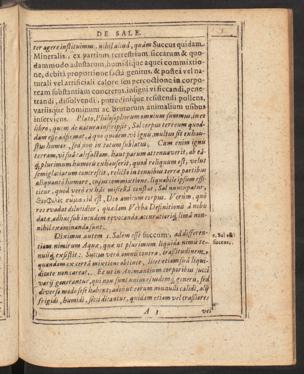 DE SALE.
ter agere instituimus, nihil aliud, quàm Succus quidam
Mineralis, ex partium terrestrium siccarum & quo-
dammodo adustarum, humidique aquei commixtio-
ne, debitâ proportione factâ genitus, & postea vel na-
turali vel artificiali calore seu percoctione in corpo-
ream substantiam concretus, insigni vi siccandi, pene-
trandi, dissolvendi, putredinique resistendi pollens,
variisque hominum ac brutorum animalium usibus
inserviens. Plato, Philosophorum omnium summus, in eo
libro, quem de natura inscripsit, Sal corpus terreum quod-
dam esse
stus humor, sed non in totum sublatus. Cum enim ignis
terram, vi suâ
plurimum humoris exhauserit, quod reliquum est, velut
semiglaciatum concrescit, relicto in tenuibus terræ partibus
aliquanto humore, cujus commixtione, liquabile ipsum effi-
citur. quod verò ex his mistis constat, Sal nuncupatur,
id est, Deo amicum corpus. Verùm, quò
res evadat dilucidior, quædam Verba Definitionis à nobis
datæ, adhuc sub incudem revocanda, accuratiorique limâ non-
nihil examinanda sunt.
Diximus autem 1. Salem esse succum, ad differen-
tiam nimirum Aquæ, quæ ut plurimum liquida nimis te-
nuisque existit. Succus verò omnis contra, crassitudinem,
quandam ex certâ mixtione obtinet, licet etiam sua liqui-
ditate non careat. Et ut in Animantium corporibus succi
varii generantur, qui non sunt unius ejusdemque generis, sed
diverso modo sese habent; adeò ut eorum nonnulli calidi, alii
frigidi, humidi, sicci dicantur, quidam etiam vel crassiores
1. Sal est
succus.
A 3
vel